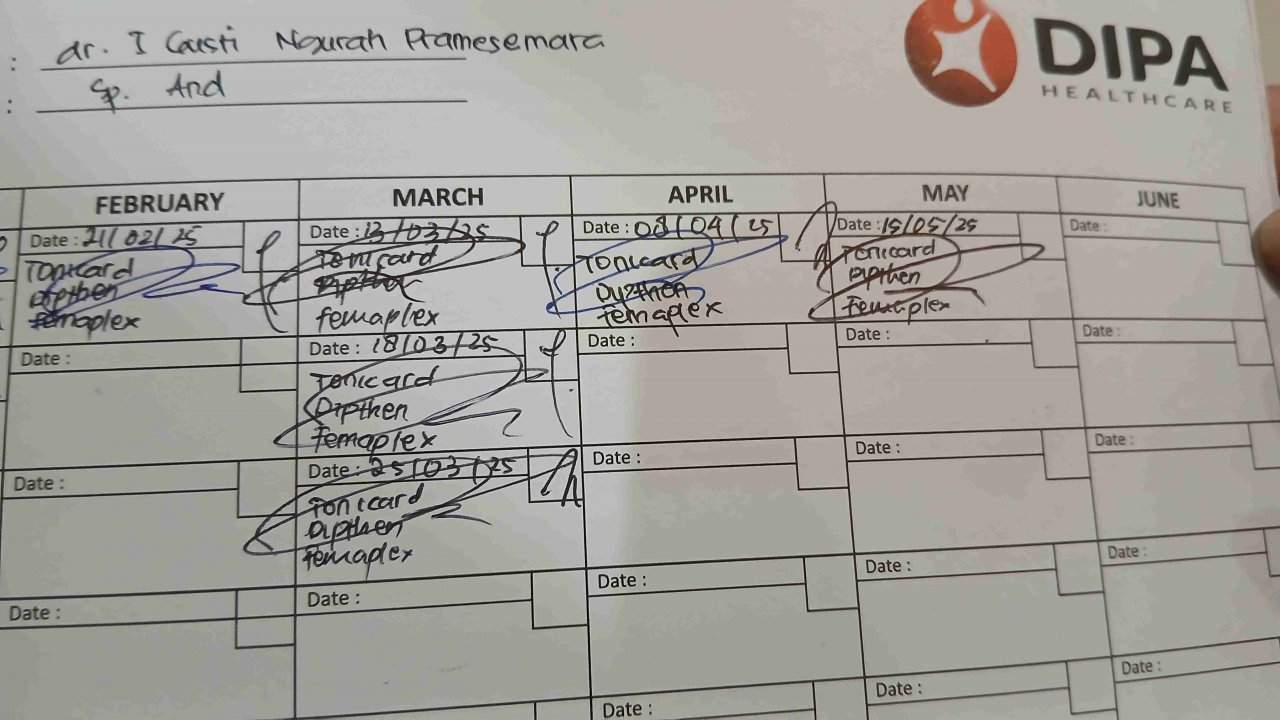 : dr. I Gusti Ngurah Pramesemara
: Sp. And
DIPA
HEALTHCARE
FEBRUARY MARCH APRIL MAY JUNE
Date : 21/02/25
Tonicard
Dipthen
Femaplex
Date : 13/03/25
Tonicard
Dipthen
femaplex
Date : 08/04/25
Tonicard
Dypthen
femaplex
Date : 15/05/25
Tonicard
Dipthen
Femaplex
Date :
Date :
Date : 18/03/25
Tonicard
Dipthen
Femaplex
Date :
Date :
Date :
Date :
Date : 25/03/25
Tonicard
Dipthen
Femaplex
Date :
Date :
Date :
Date :
Date :
Date :
Date :
Date :
Date :
Date :
Date :